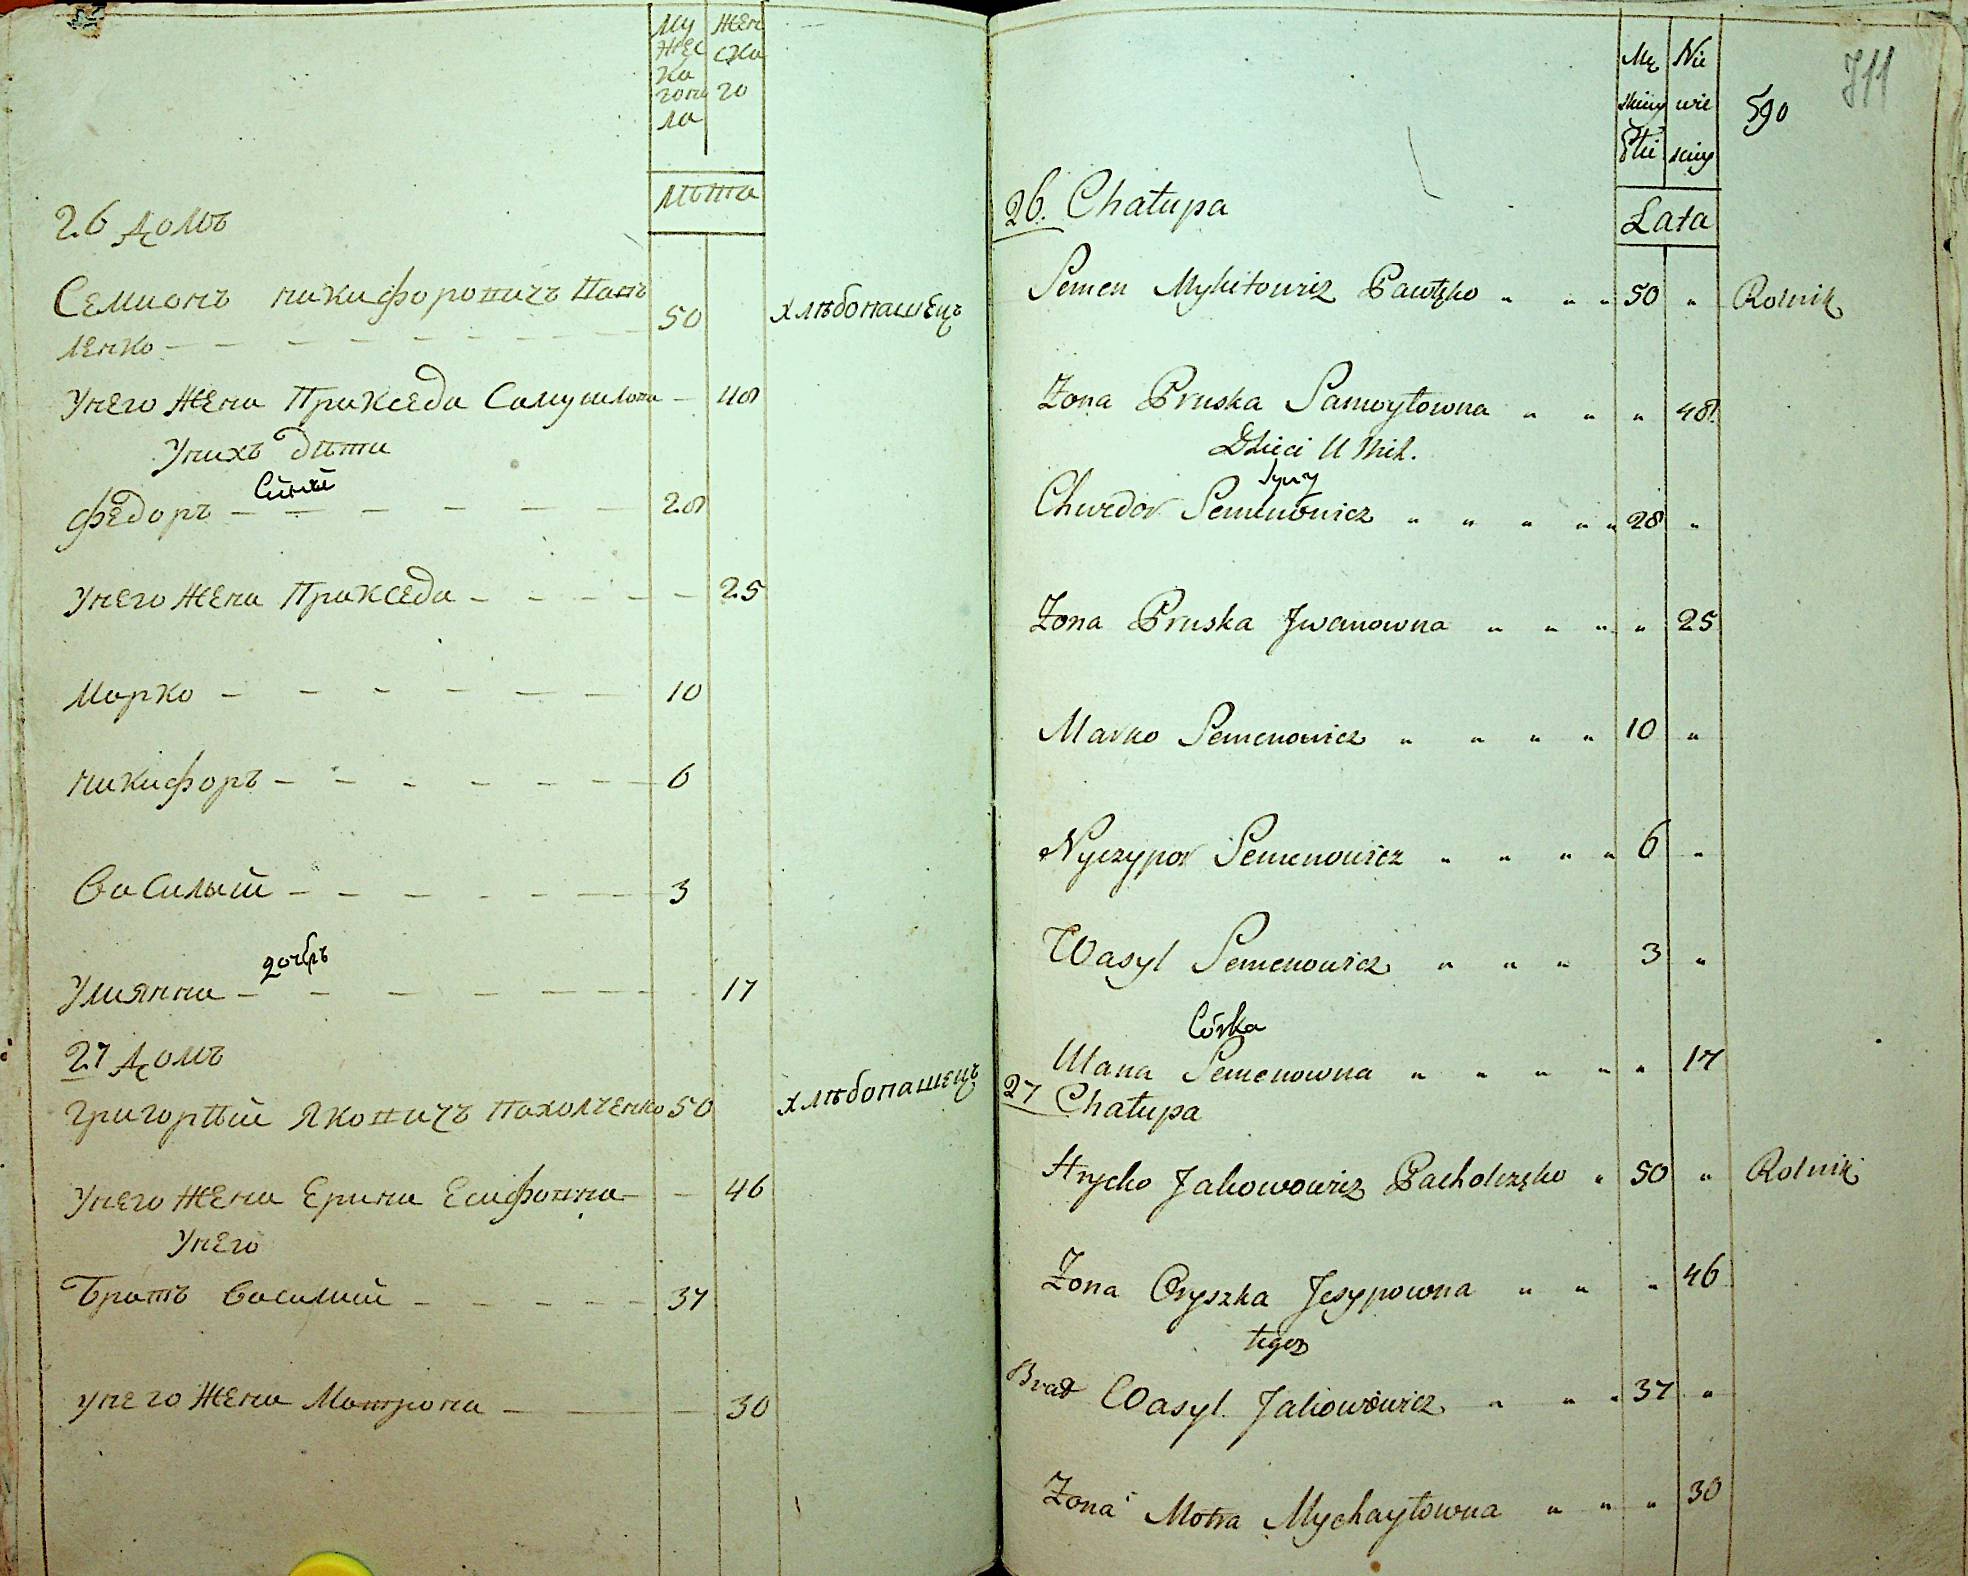 Му Жен
жес ска
ка го
го по
ла
Лѣта
26 домъ
Семионъ никифоровичъ Пав
ленко 50 хлѣбопашецъ
Унего жена Пракседа Самуилова 48
Унихъ дѣти
Сыны
федоръ 28
Унего жена Пракседа 25
Марко 10
никифоръ 6
Василый 3
дочерь
Улиянна 17
27 домъ
Григорый Яковичъ Пахолченко 50 хлѣбопашецъ
Унего жена Ерина Есифовна 46
Унего
Братъ Василий 37
унего жена Матрона 30
Mę Nie
skiey wie
Płci skiey
Lata
590
711
26. Chałupa
Semen Mykitowicz Pawłęko " " " 50 " Rolnik
Żona Pruska Samoyłowna " " " 48
Dzieci U Nich.
Syny
Chwedor Semenowicz " " " " " 28 "
Żona Pruska Jwanowna " " " " 25
Marko Semenowicz " " " " 10 "
Nyczypor Semenowicz " " " " 6 "
Wasyl Semenowicz " " " 3 "
Córka
Ulana Semenowna " " " " " 17
27 Chałupa
Hrycko Jakowowicz Pacholczęko " 50 " Rolnik
Żona Oryszka Jesypowna " " " 46
tegoż
Brat Wasyl Jakowowicz " " " 37 "
Żona Motra Mychayłowna " " " 30